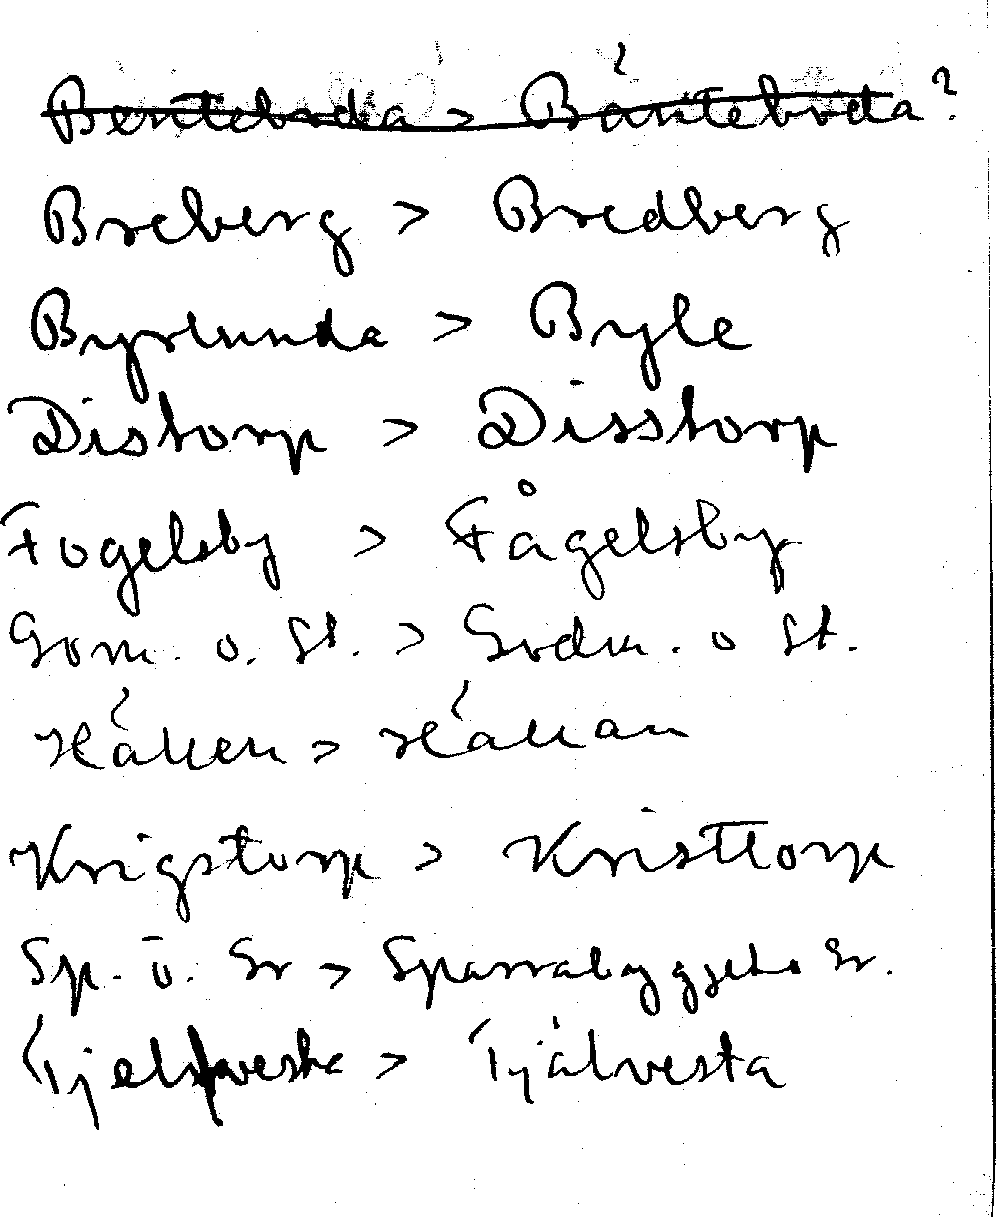 Benteboda > Bänteboda?
Breberg > Bredberg
Byrlunda > Byle
Distorp > Disstorp
Fogelsby > Fågelsby
Gom. o. St. > Godm. o St.
Håken > Håkan
Krigstorp > Kristtorp
Sp. ö. Gr > Sparrabygget ö Gr.
Tjelvesta > Tjälvesta